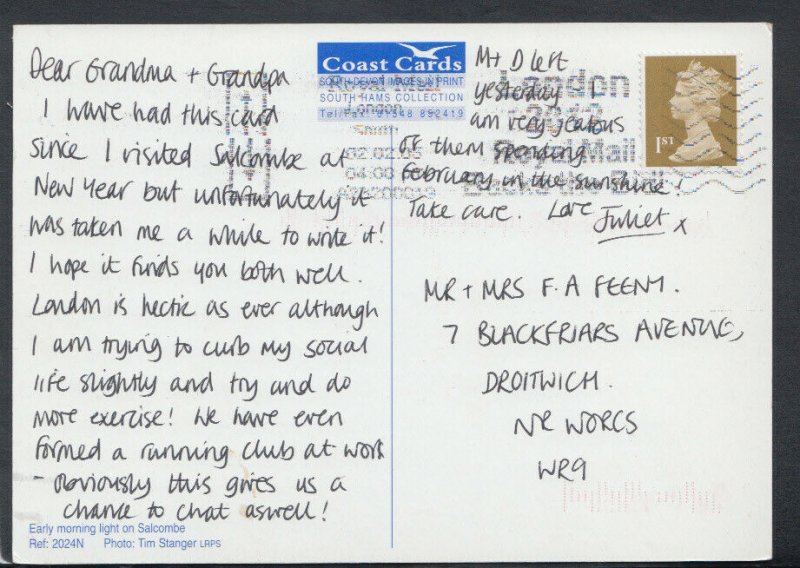 Dear Grandma + Grandpa
I have had this card
since I visited Salcombe at
New Year but unfortunately it
has taken me a while to write it!
I hope it finds you both well.
London is hectic as ever although
I am trying to curb my social
life slightly and try and do
more exercise! We have even
formed a running club at work
- obviously this gives us a
chance to chat aswell!
Early morning light on Salcombe
Ref: 2024N Photo: Tim Stanger LRPS
Coast Cards
SOUTH DEVON IMAGES IN PRINT
SOUTH HAMS COLLECTION
Tel/Fax: 01548 842419
London
South
02.02.05
04:00
London
Mail
Back the Bid
1ST
M + D left
yesterday
am very jealous
of them spending
February in the sunshine!
Take care. Love
Juliet x
MR + MRS F.A FEENY.
7 BLACKFRIARS AVENUE,
DROITWICH.
NR WORCS
WR9